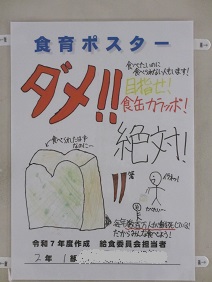 食育ポスター
ダメ!!
食べたいのに
食べられない人もいます!
目指せ!
食缶カラッポ!
絶対!
食べられたはず
なのに〜
だからみんな食べよう!
令和7年度作成 給食委員会担当者
2年 1部